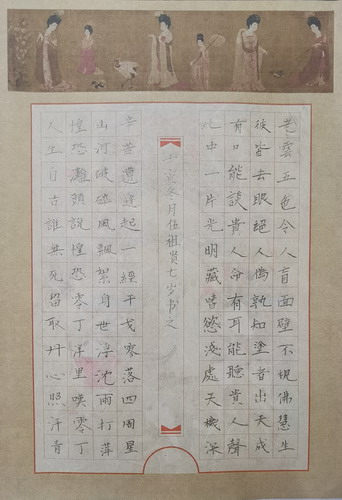 雲五色令人盲面壁不視佛慧生
去眼絕人偽孰知塗者出天成
有口能談貴人命有耳能聽貴人聲
此中一片光明藏嗜慾淺處天機深
冬月伍祖贤七岁书之
辛苦遭逢起一經干戈寥落四周星
山河破碎風飄絮身世浮沈雨打萍
惶恐灘頭說惶恐零丁洋里嘆零丁
人生自古誰無死留取丹心照汗青